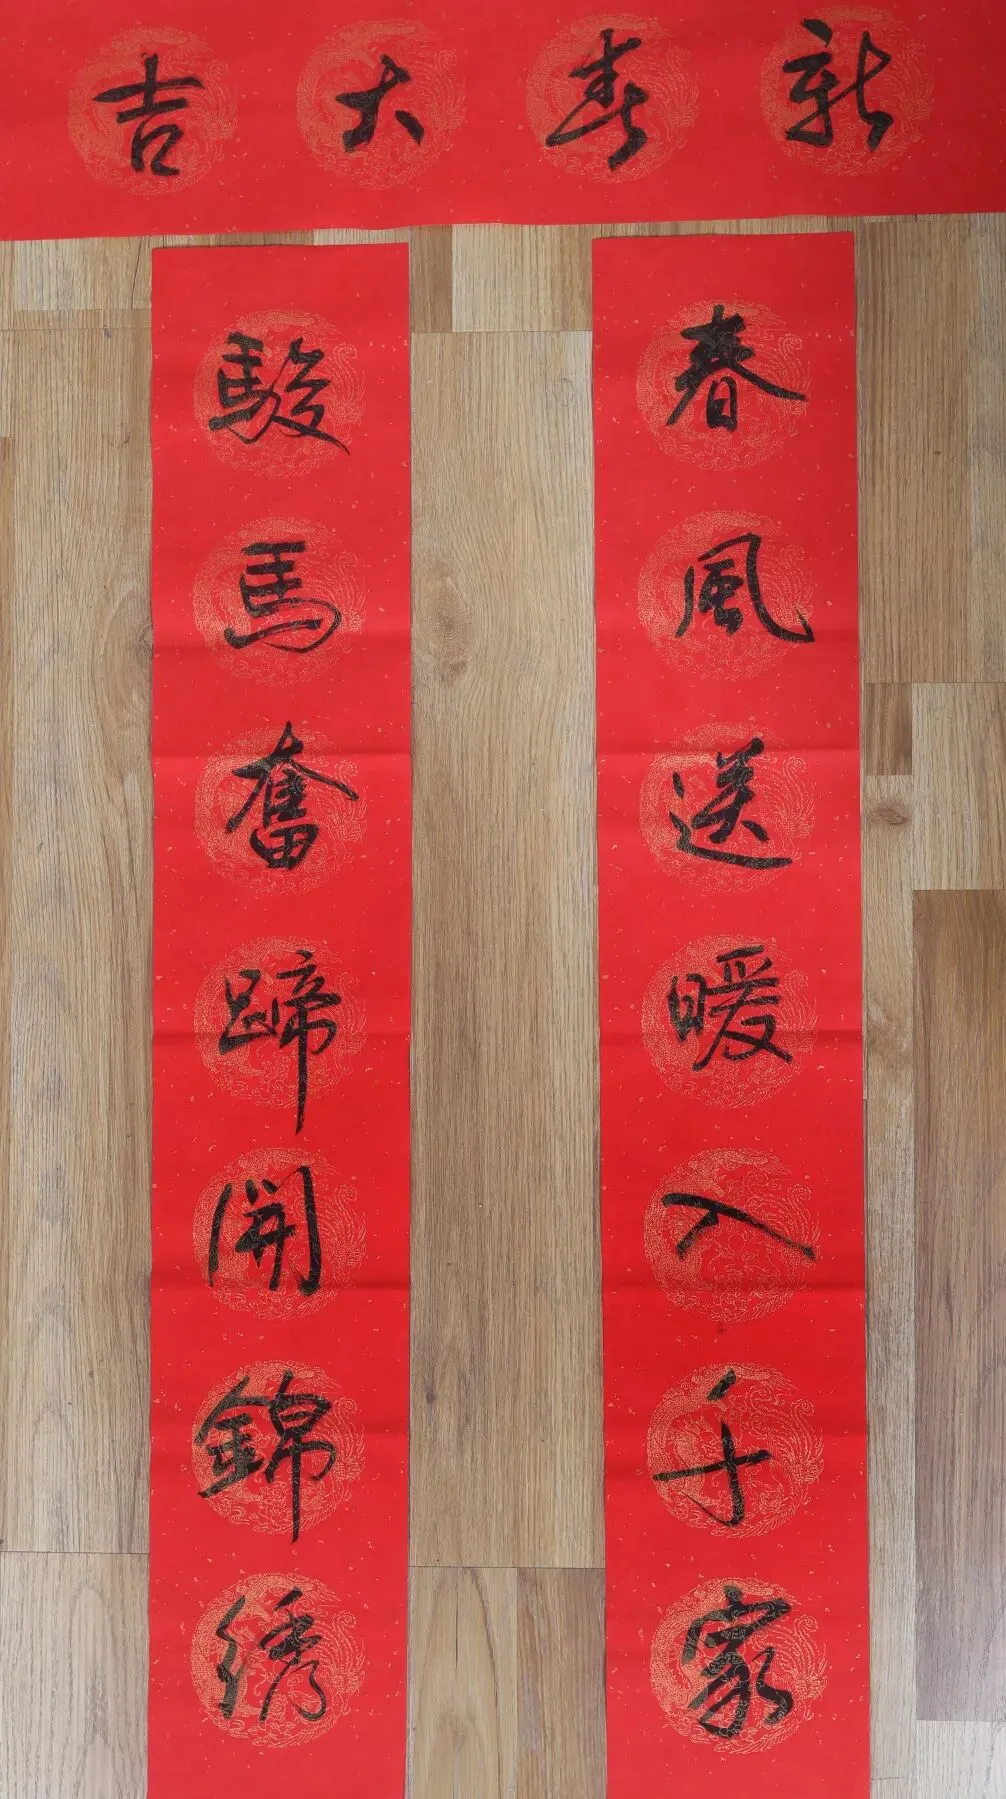 新春大吉
春風送暖入千家
駿馬奮蹄開錦綉